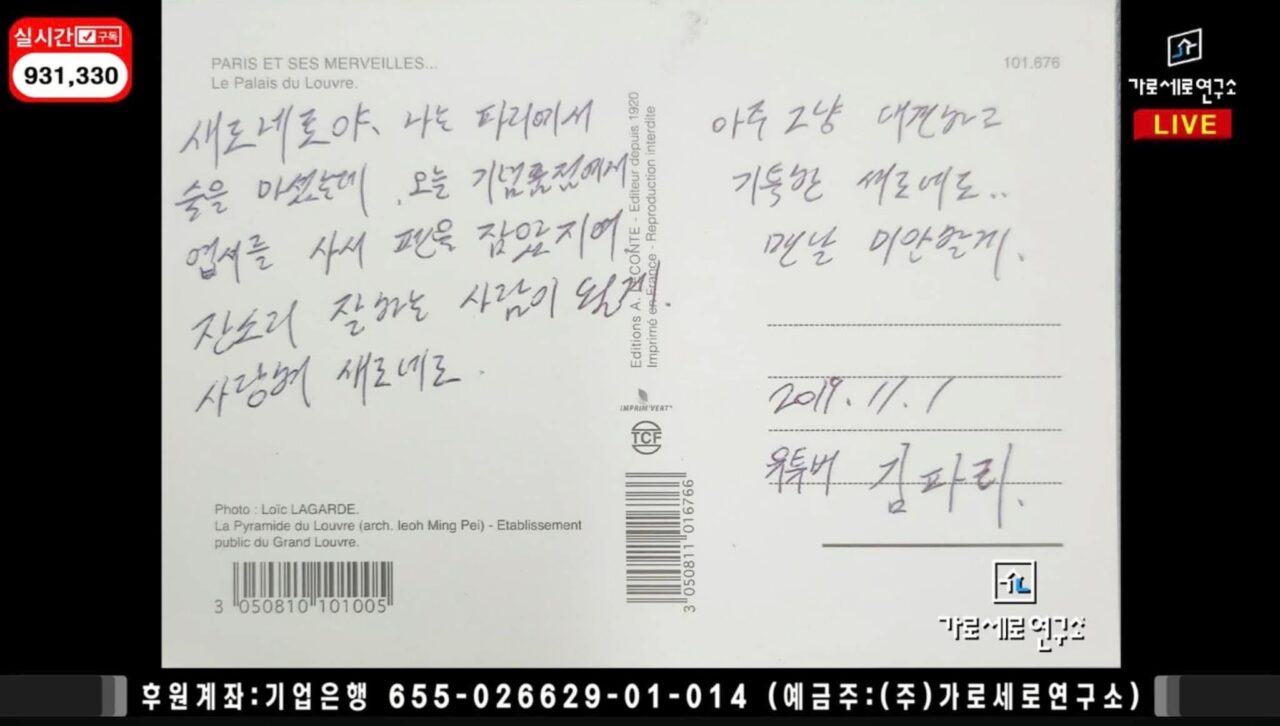 실시간 구독
931,330
가로세로연구소
LIVE
PARIS ET SES MERVEILLES...
Le Palais du Louvre.
101.676
새로네로야. 나는 파리에서
술을 마셨는데. 오늘 기념품점에서
엽서를 사서 펜을 잠았지여.
잔소리 잘하는 사람이 될게.
사랑해 새로네로.
Editions A. LECONTE - Editeur depuis 1920
Imprimé en France - Reproduction interdite
IMPRIM'VERT®
TCF
아주 그냥 대견하고
기특한 새로네로..
맨날 미안할게.
2019.11.1
유투버 김파리.
Photo : Loïc LAGARDE.
La Pyramide du Louvre (arch. Ieoh Ming Pei) - Etablissement
public du Grand Louvre.
3 050810 101005
3 050811 016766
가로세로연구소
후원계좌:기업은행 655-026629-01-014 (예금주:(주)가로세로연구소)